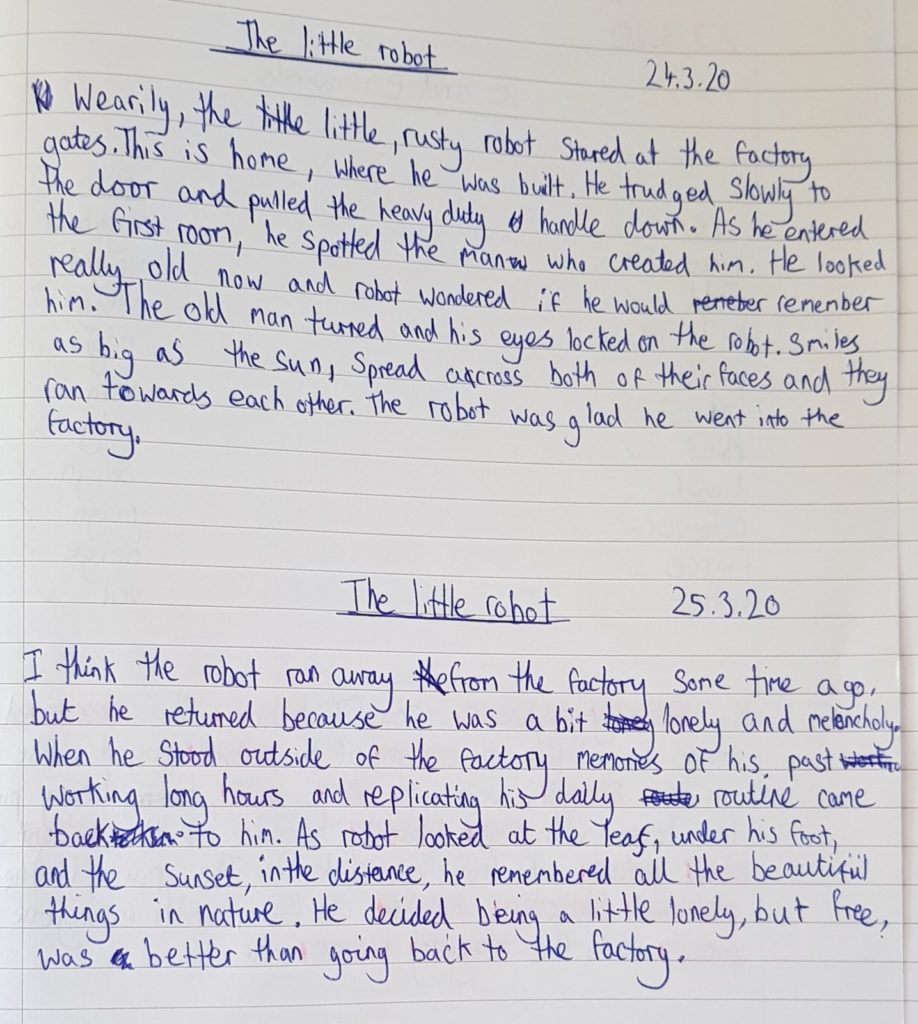 The little robot
24.3.20
Wearily, the little little, rusty robot stared at the factory
gates. This is home, where he was built. He trudged slowly to
the door and pulled the heavy duty handle down. As he entered
the first room, he spotted the man who created him. He looked
really old now and robot wondered if he would remeber remember
him. The old man turned and his eyes locked on the robot. Smiles
as big as the sun, spread accross both of their faces and they
ran towards each other. The robot was glad he went into the
factory.
The little robot
25.3.20
I think the robot ran away from the factory some time ago,
but he returned because he was a bit loney lonely and melencholy.
When he stood outside of the factory memories of his past
working long hours and replicating his daily route routine came
back to him. As robot looked at the leaf, under his foot,
and the sunset, in the distance, he remembered all the beautiful
things in nature. He decided being a little lonely, but free,
was a better than going back to the factory.